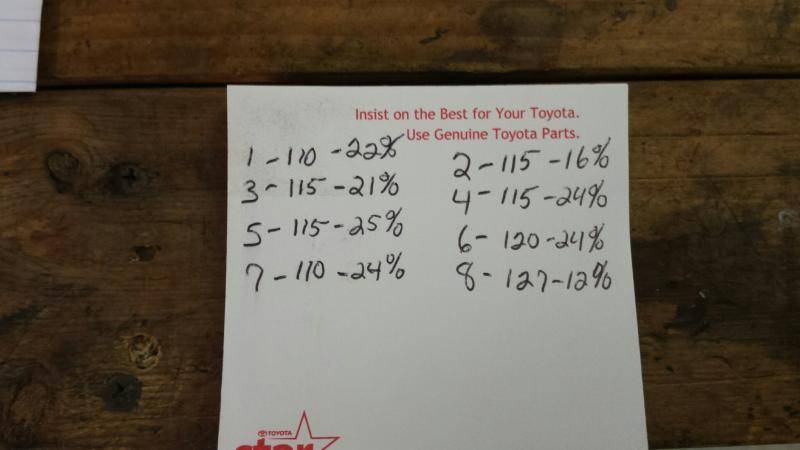 Insist on the Best for Your Toyota.
Use Genuine Toyota Parts.
1 - 110 - 22% 2 - 115 - 16%
3 - 115 - 21% 4 - 115 - 24%
5 - 115 - 25% 6 - 120 - 24%
7 - 110 - 24% 8 - 127 - 12%
TOYOTA
star